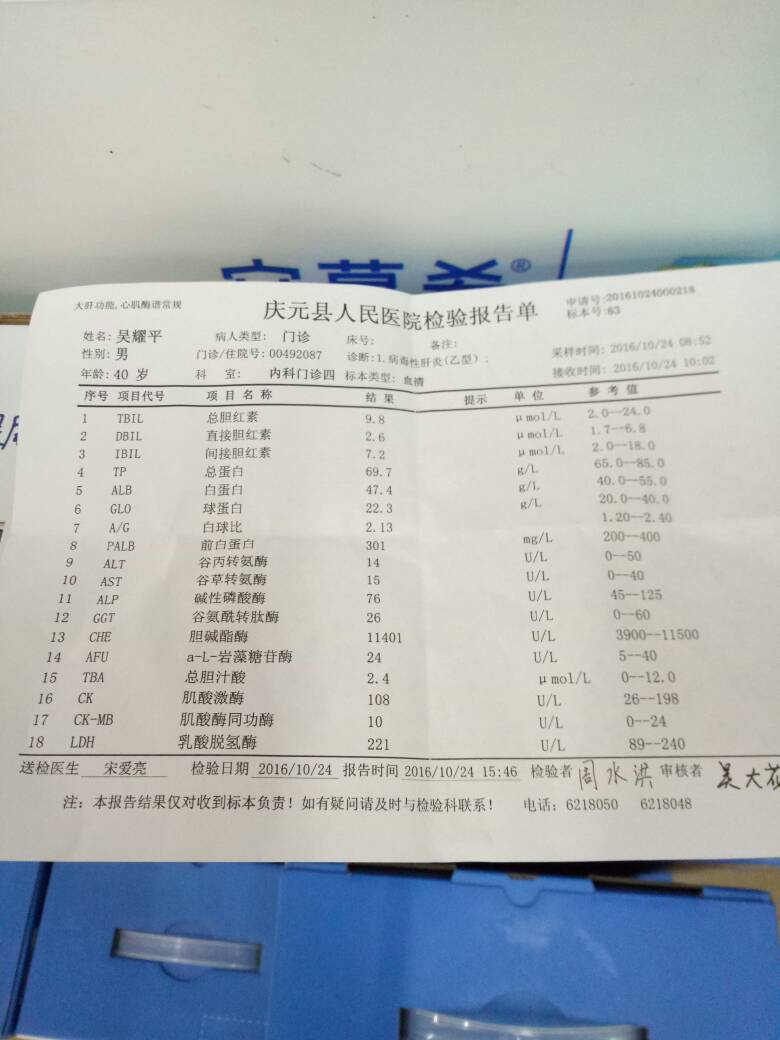 大肝功能,心肌酶谱常规
庆元县人民医院检验报告单
申请号:20161024000218
标本号:63
姓名: 吴耀平 病人类型: 门诊 床号: 备注:
采样时间: 2016/10/24 08:52
性别: 男 门诊/住院号: 00492087 诊断: 1.病毒性肝炎(乙型).
接收时间: 2016/10/24 10:02
年龄: 40 岁 科 室: 内科门诊四 标本类型: 血清
序号 项目代号 项 目 名 称 结 果 提示 单 位 参 考 值
1 TBIL 总胆红素 9.8 μmol/L 2.0--24.0
2 DBIL 直接胆红素 2.6 μmol/L 1.7--6.8
3 IBIL 间接胆红素 7.2 μmol/L 2.0--18.0
4 TP 总蛋白 69.7 g/L 65.0--85.0
5 ALB 白蛋白 47.4 g/L 40.0--55.0
6 GLO 球蛋白 22.3 g/L 20.0--40.0
7 A/G 白球比 2.13 1.20--2.40
8 PALB 前白蛋白 301 mg/L 200--400
9 ALT 谷丙转氨酶 14 U/L 0--50
10 AST 谷草转氨酶 15 U/L 0--40
11 ALP 碱性磷酸酶 76 U/L 45--125
12 GGT 谷氨酰转肽酶 26 U/L 0--60
13 CHE 胆碱酯酶 11401 U/L 3900--11500
14 AFU a-L-岩藻糖苷酶 24 U/L 5--40
15 TBA 总胆汁酸 2.4 μmol/L 0--12.0
16 CK 肌酸激酶 108 U/L 26--198
17 CK-MB 肌酸酶同功酶 10 U/L 0--24
18 LDH 乳酸脱氢酶 221 U/L 89--240
送检医生 宋爱亮 检验日期 2016/10/24 报告时间 2016/10/24 15:46 检验者 周水洪 审核者 吴大
注: 本报告结果仅对收到标本负责! 如有疑问请及时与检验科联系! 电话: 6218050 6218048